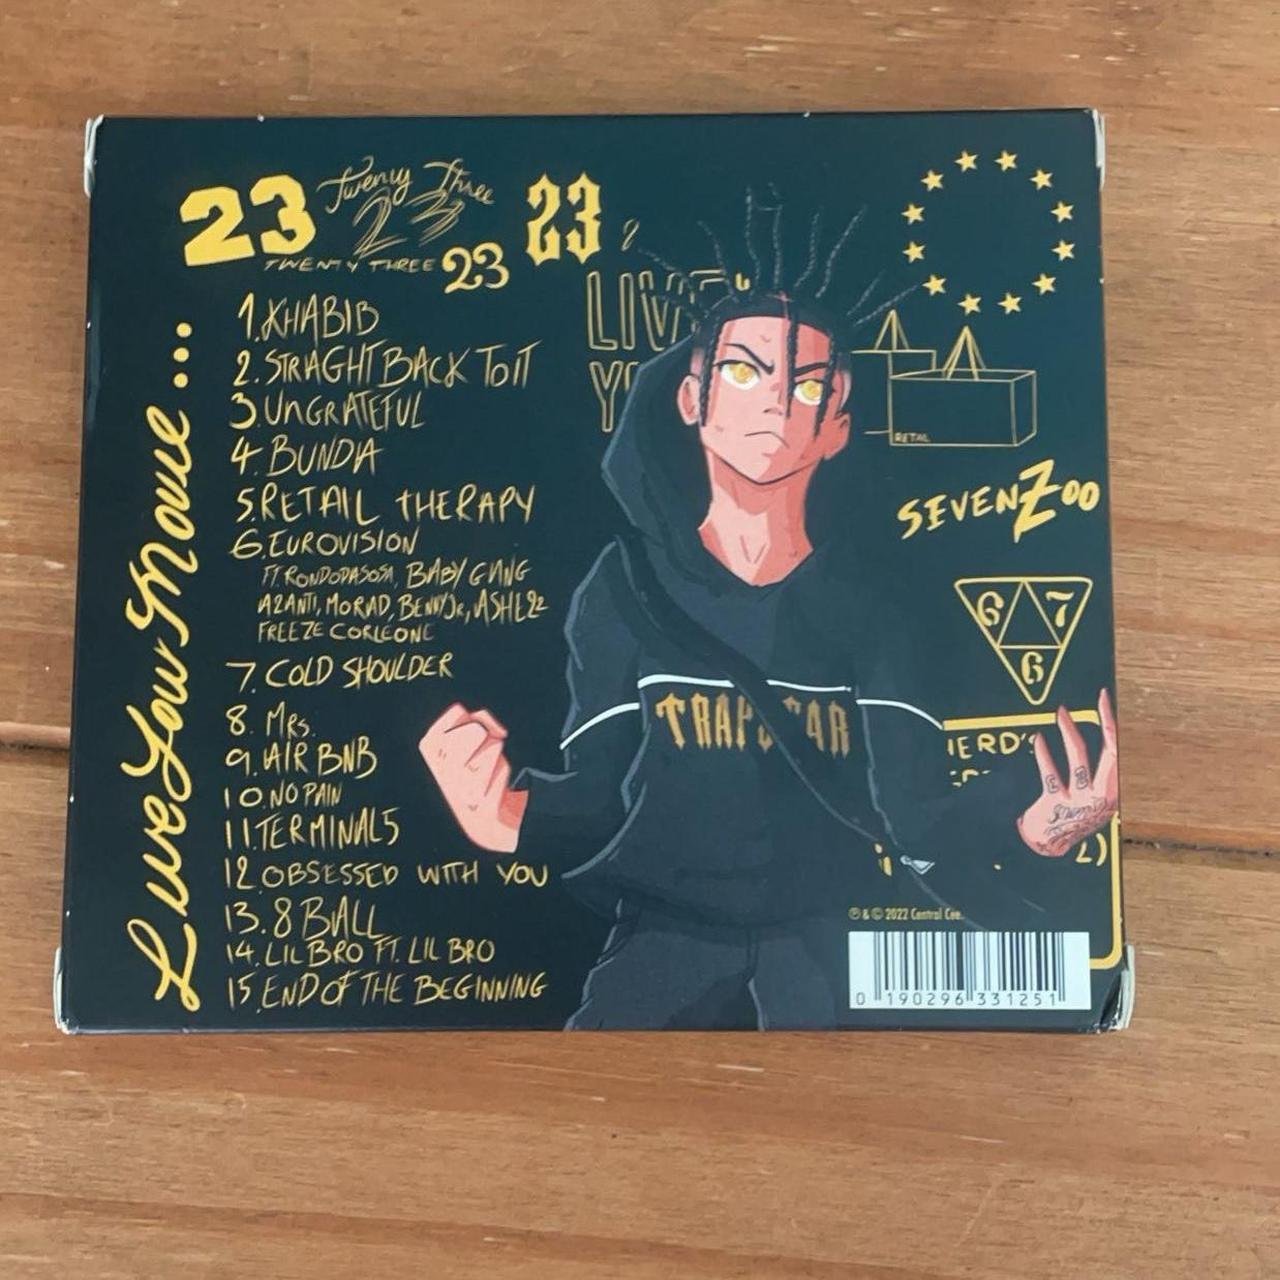 23
Twenty Three
23
TWENTY THREE
23
23
LiveYourMove...
1.KHABIB
2.STRAGHT BACK TO IT
3.UNGRATEFUL
4.BUNDA
5.RETAIL THERAPY
6.EUROVISION
FT. RONDODASOSA, BABY GANG
A2ANTI, MORAD, BENNY Jr, ASHE 22
FREEZE CORLEONE
7.COLD SHOULDER
8. MRS.
9.AIR BNB
10.NO PAIN
11.TERMINAL 5
12.OBSESSED WITH YOU
13.8 BALL
14.LIL BRO FT. LIL BRO
15.END OF THE BEGINNING
LIVE
RETAIL
SEVENZOO
6 7
6
TRAPSTAR
℗ & © 2022 Central Cee.
0 190296 331251